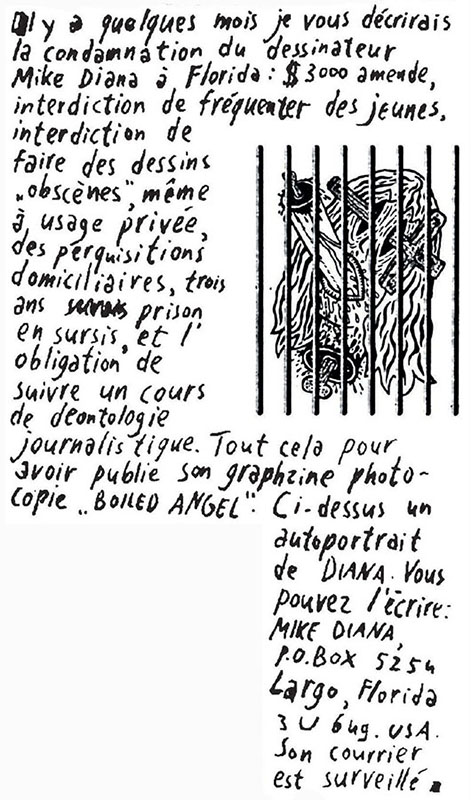 Il y a quelques mois je vous décrirais
la condamnation du dessinateur
Mike Diana à Florida: $3000 amende,
interdiction de fréquenter des jeunes,
interdiction de
faire des dessins
„obscènes", même
à usage privée,
des perquisitions
domiciliaires, trois
ans prison
en sursis, et l'
obligation de
suivre un cours
de deontologie
journalistique. Tout cela pour
avoir publie son graphzine photo-
copie „BOILED ANGEL". Ci-dessus un
autoportrait
de DIANA. Vous
pouvez l'écrire:
MIKE DIANA,
P.O.BOX 5254
Largo, Florida
USA.
Son courrier
est surveillé.